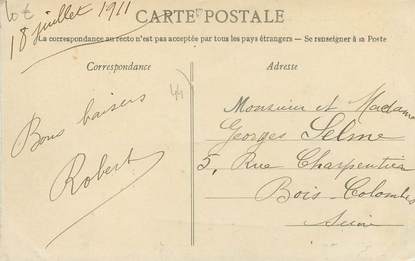 10 €
18 juillet 1911
CARTE POSTALE
La correspondance au recto n'est pas acceptée par tous les pays étrangers — Se renseigner à la Poste
Correspondance
Adresse
44
Bons baisers
Robert
Monsieur et Madame
Georges Selme
5, Rue Charpentier
Bois-Colombes
Seine